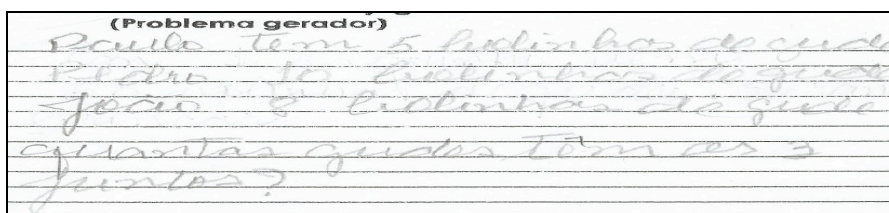 (Problema gerador)
Paulo tem 5 bolinhas de gude
Pedro 10 bolinhas de gude
João 8 bolinhas de gude
quantas gudes têm os 3
juntos?